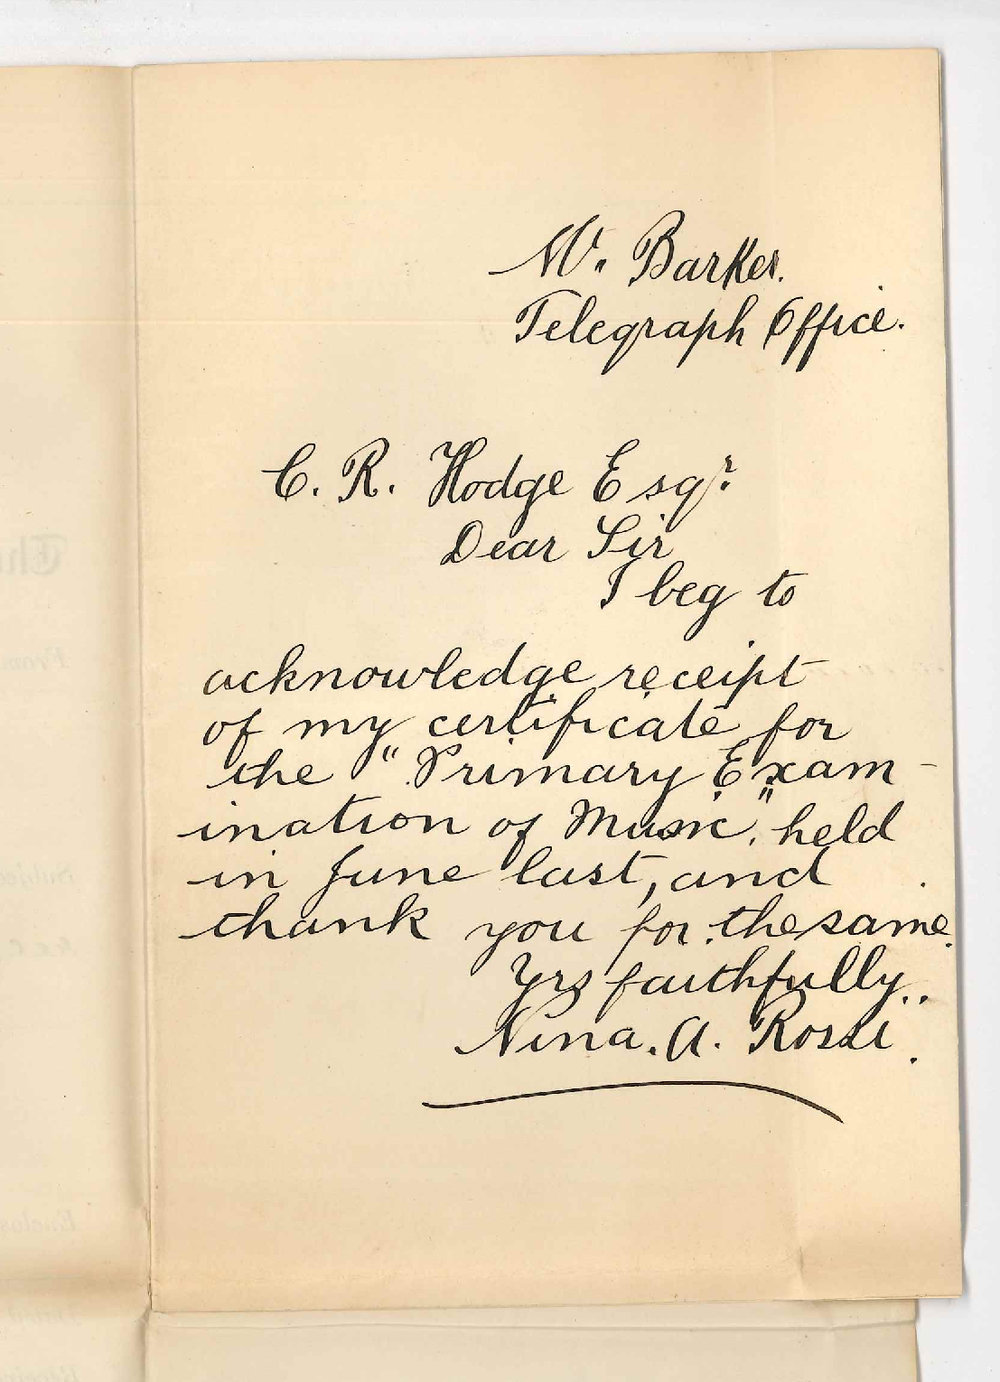 Mt. Barker.
Telegraph Office.
C. R. Hodge Esqr.
Dear Sir
I beg to
acknowledge receipt
of my certificate for
the "Primary Exam-
ination of Music", held
in June last, and
thank you for the same.
Yrs faithfully,
Nina. A. Rossi.